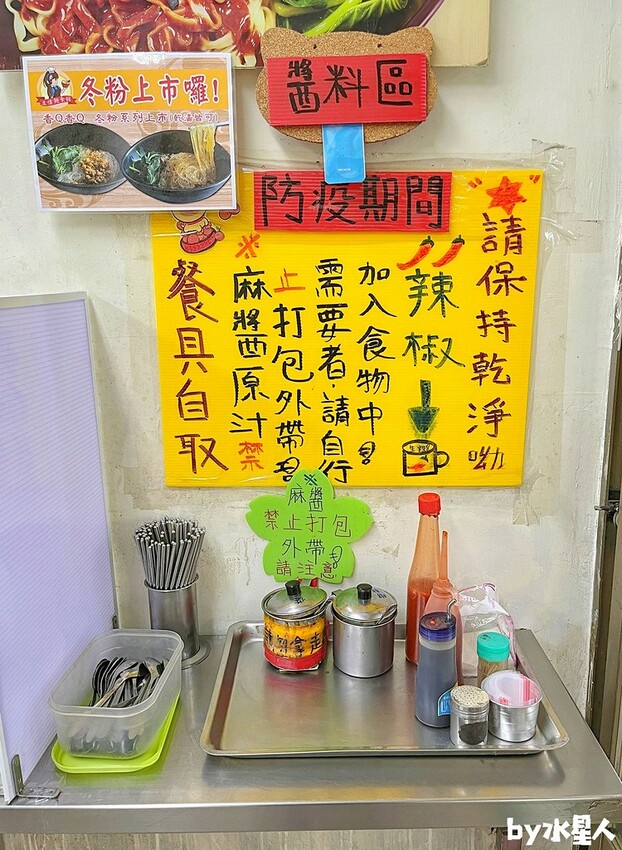 冬粉上市囉!
香Q香Q 冬粉系列上市(乾湯皆可)
醬料區
防疫期間
請保持乾淨呦
辣椒
加入食物中
需要者,請自行
※麻醬原汁禁
止打包外帶
餐具自取
※
麻醬
禁止打包
外帶
請注意
請勿拿走
by水星人